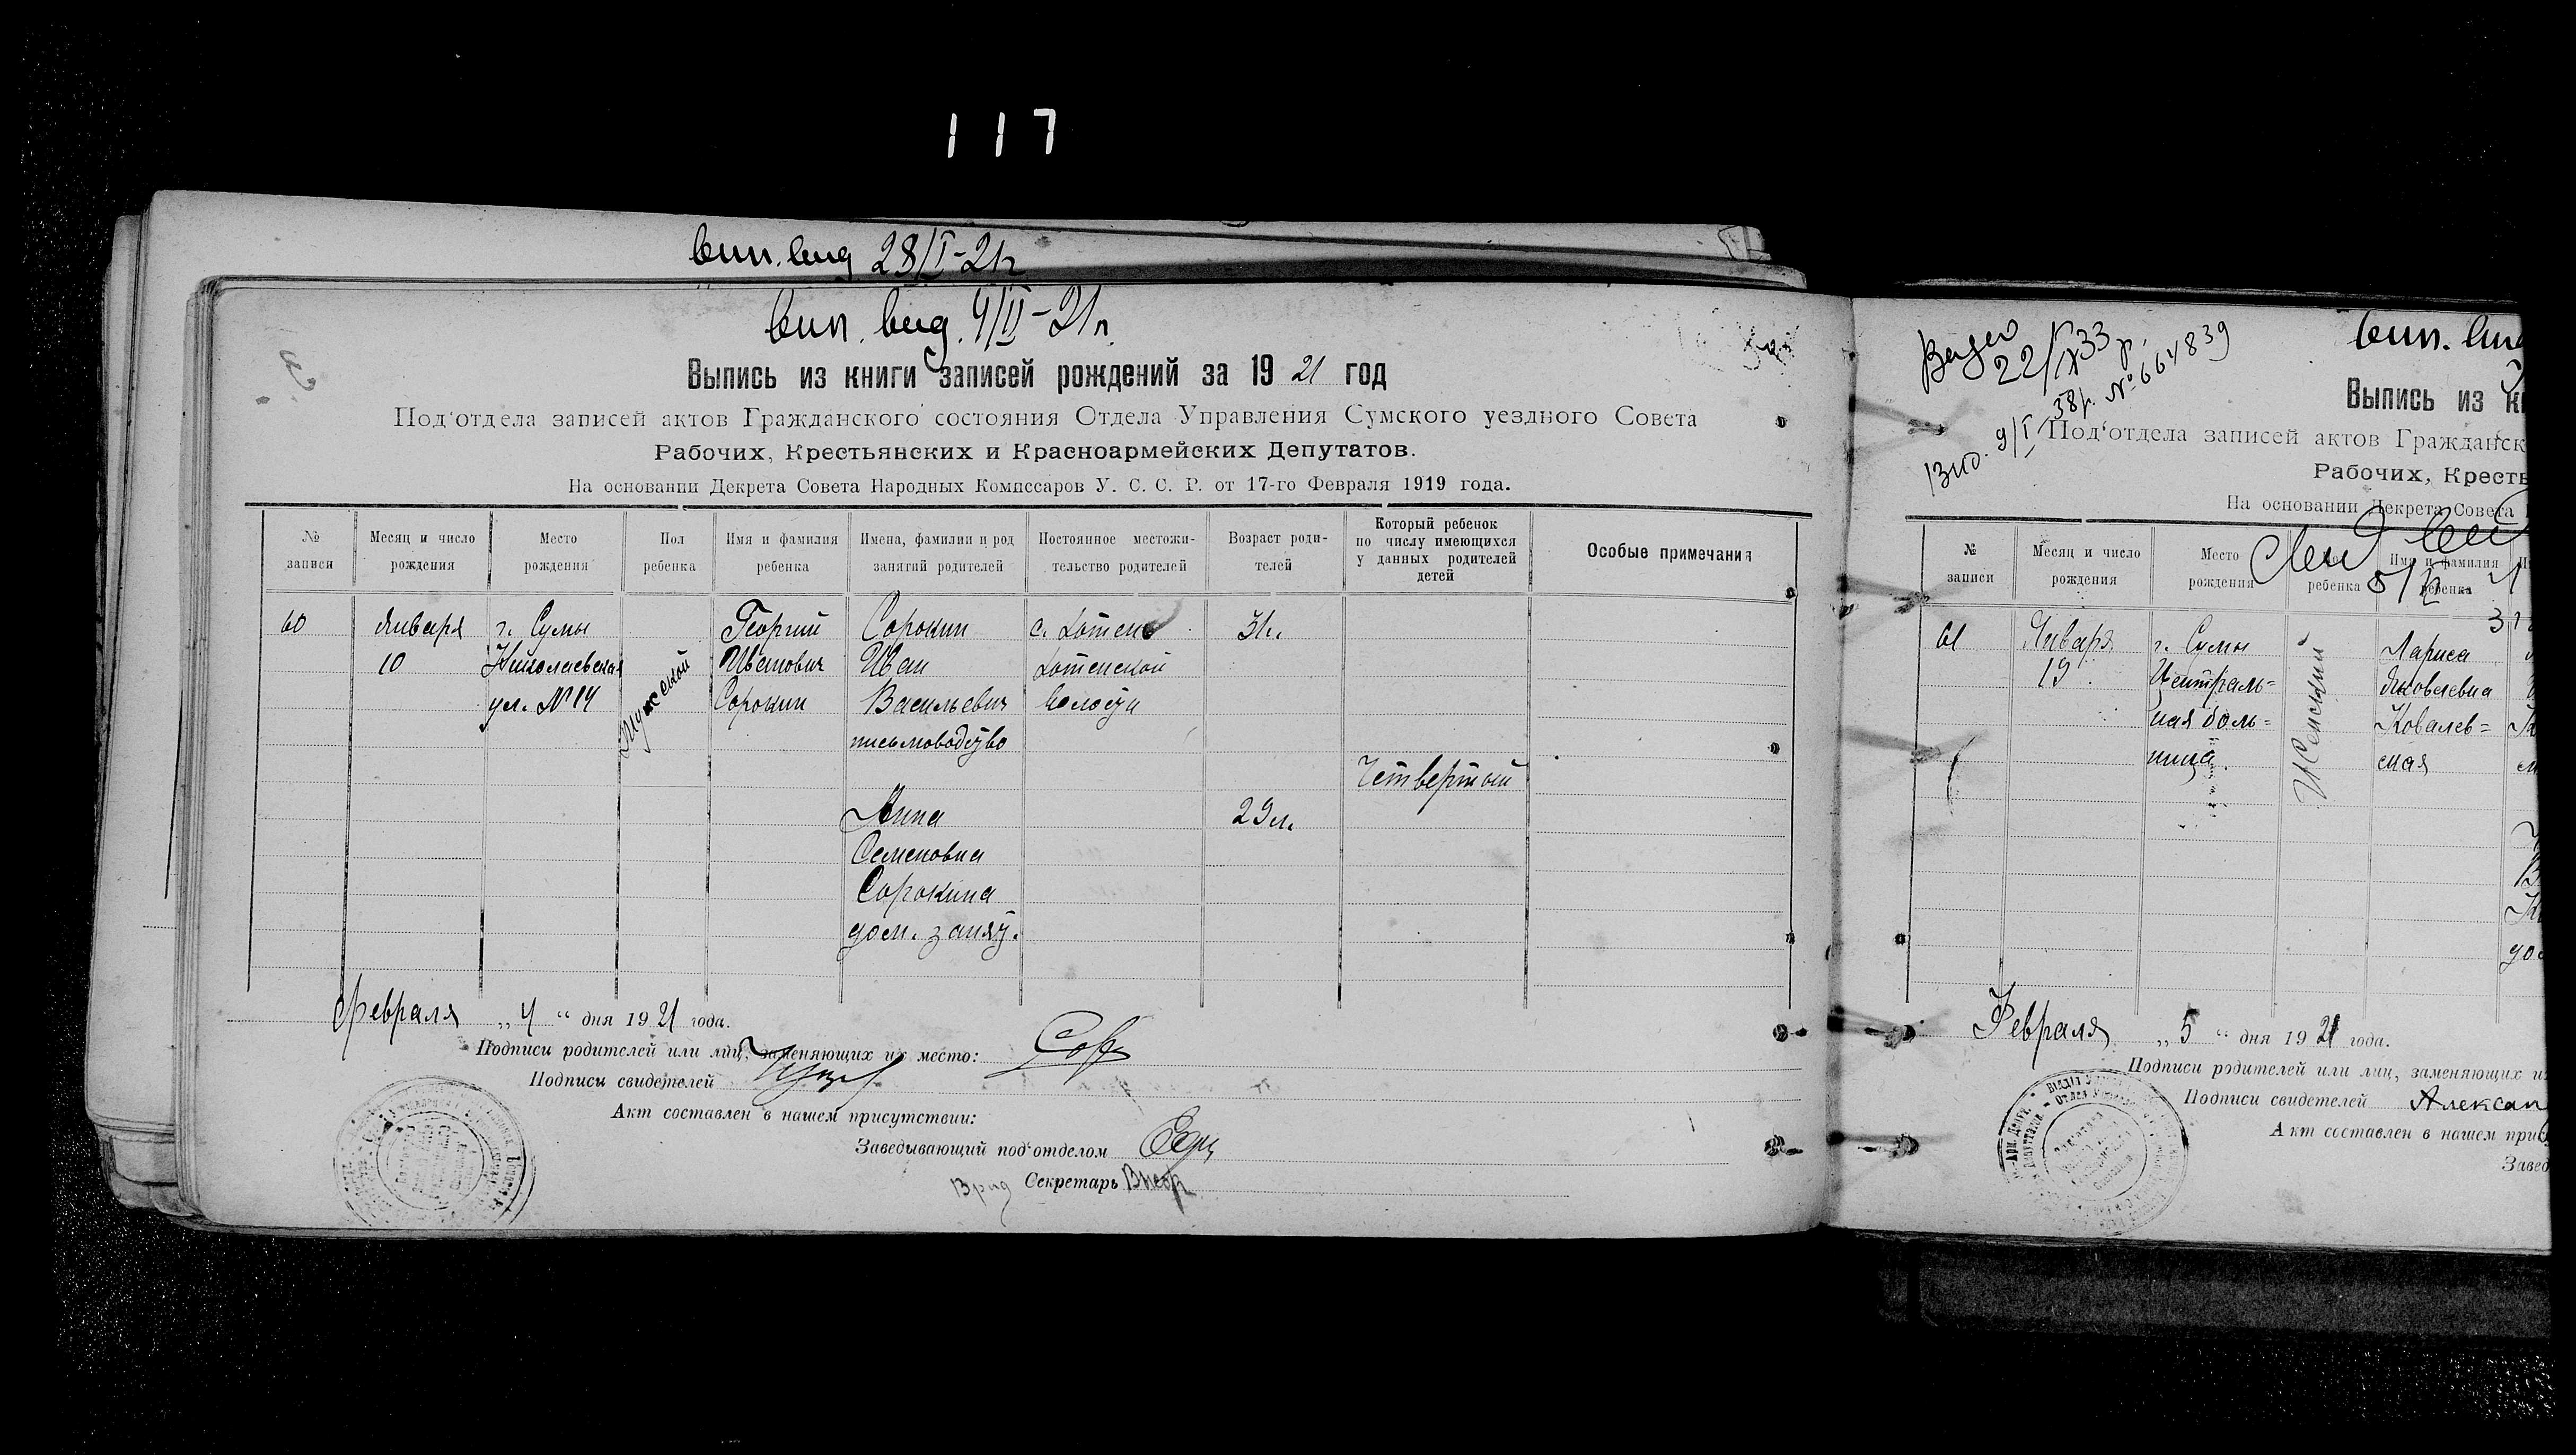 117
вып. выд. 28/I-21г
вып. выд. 4/II-21г.
Выпись из книги записей рождений за 1921 год
Под‘отдела записей актов Гражданского состояния Отдела Управления Сумского уездного Совета
Рабочих, Крестьянских и Красноармейских Депутатов.
На основании Декрета Совета Народных Комиссаров У. С. С. Р. от 17-го Февраля 1919 года.
№ записи
Месяц и число рождения
Место рождения
Пол ребенка
Имя и фамилия ребенка
Имена, фамилии и род занятий родителей
Постоянное местожи-тельство родителей
Возраст роди-телей
Который ребенок по числу имеющихся у данных родителей детей
Особые примечания
60
Января
10
г. Сумы
Николаевская
ул. №14
Мужской
Георгий
Иванович
Сорокин
Сорокин
Иван
Васильевич
письмоводство
Анна
Семеновна
Сорокина
дом. занят.
с. Хотень
Хотенской
волости
31л.
29л.
Четвертый
Февраля „4“ дня 1921 года.
Подписи родителей или лиц, заменяющих их место:
Подписи свидетелей
Акт составлен в нашем присутствии:
Заведывающий под‘отделом
Врид Секретарь
22/IX 33 р.
Вид. 9/I 38р. № 664839
вып. выд
Выпись из кн
Под‘отдела записей актов Гражданск
Рабочих, Кресть
На основании Декрета Совета
№ записи
Месяц и число рождения
Место рождения
ребенка
Имя и фамилия ребенка
61
Января
19
г. Сумы
Централь=
ная боль=
ница.
Женский
Лариса
Яковлевна
Ковалев=
ская
Февраля „5“ дня 1921 года.
Подписи родителей или лиц, заменяющих и
Подписи свидетелей Алексан
Акт составлен в нашем прис
Завед